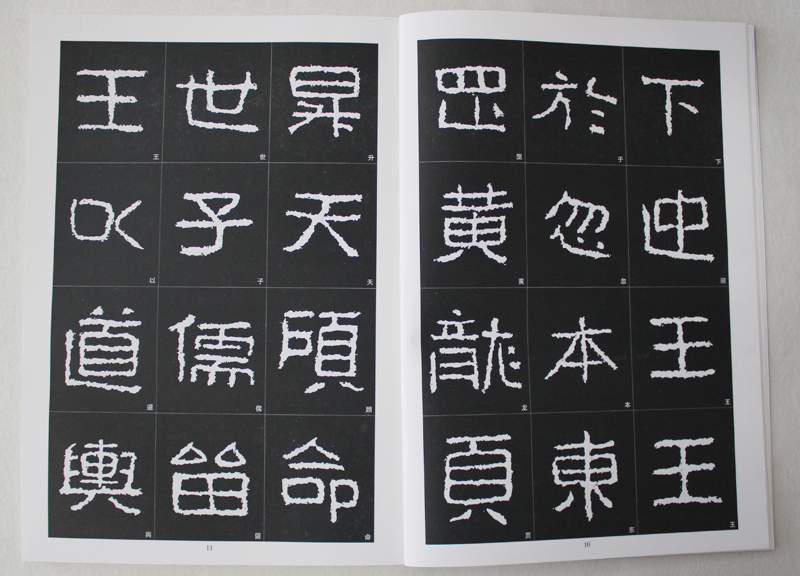 下迊王王
下 迎 王 王
於忽本東
于 忽 本 东
罡黃龍頁
罡 黄 龙
10
昇天顧命
升 天 顾 命
世子儒留
世 子 儒 留
王以道輿
王 以 道
11